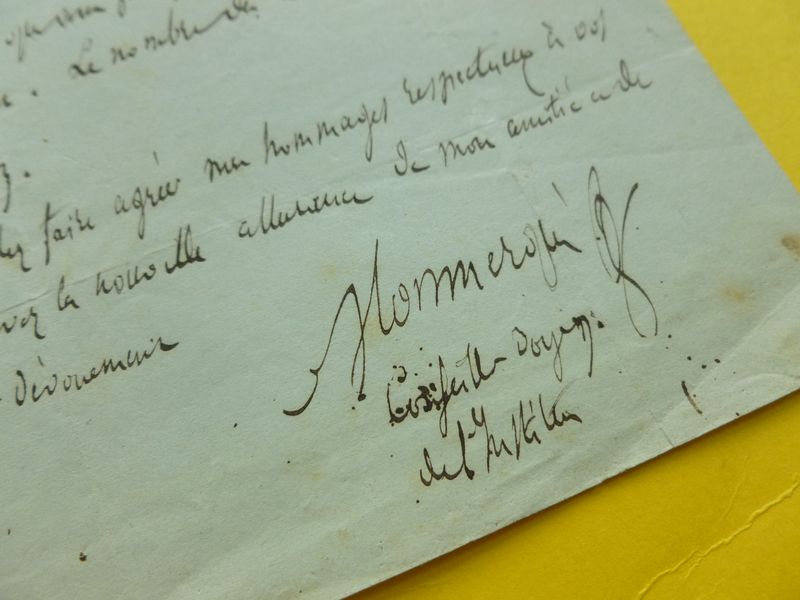 Le nombre de
faire agréer mes hommages respectueux à vos
la nouvelle assurance de mon amitié et de
dévouement
Monmerqué
Conseiller doyen
de l'Institut